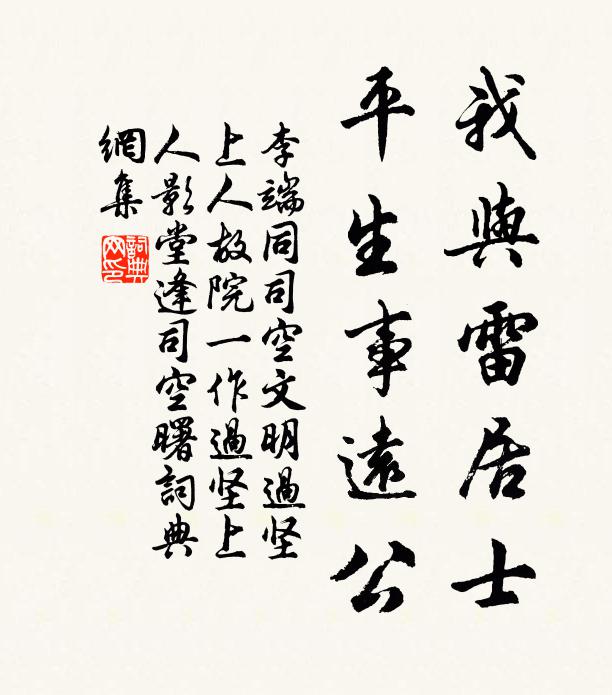 我與雷居士
平生事遠公
李端同司空文明過坚
上人故院一作過坚上
人影堂逢司空曙詞典
網集
詞典网印